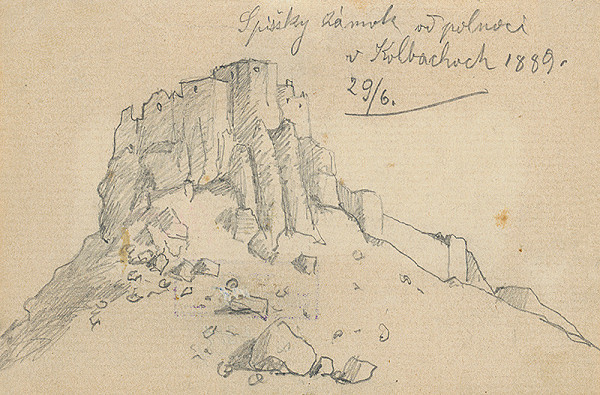 Spišský zámok od polnoci
v Kolbachoch 1889.
29/6.